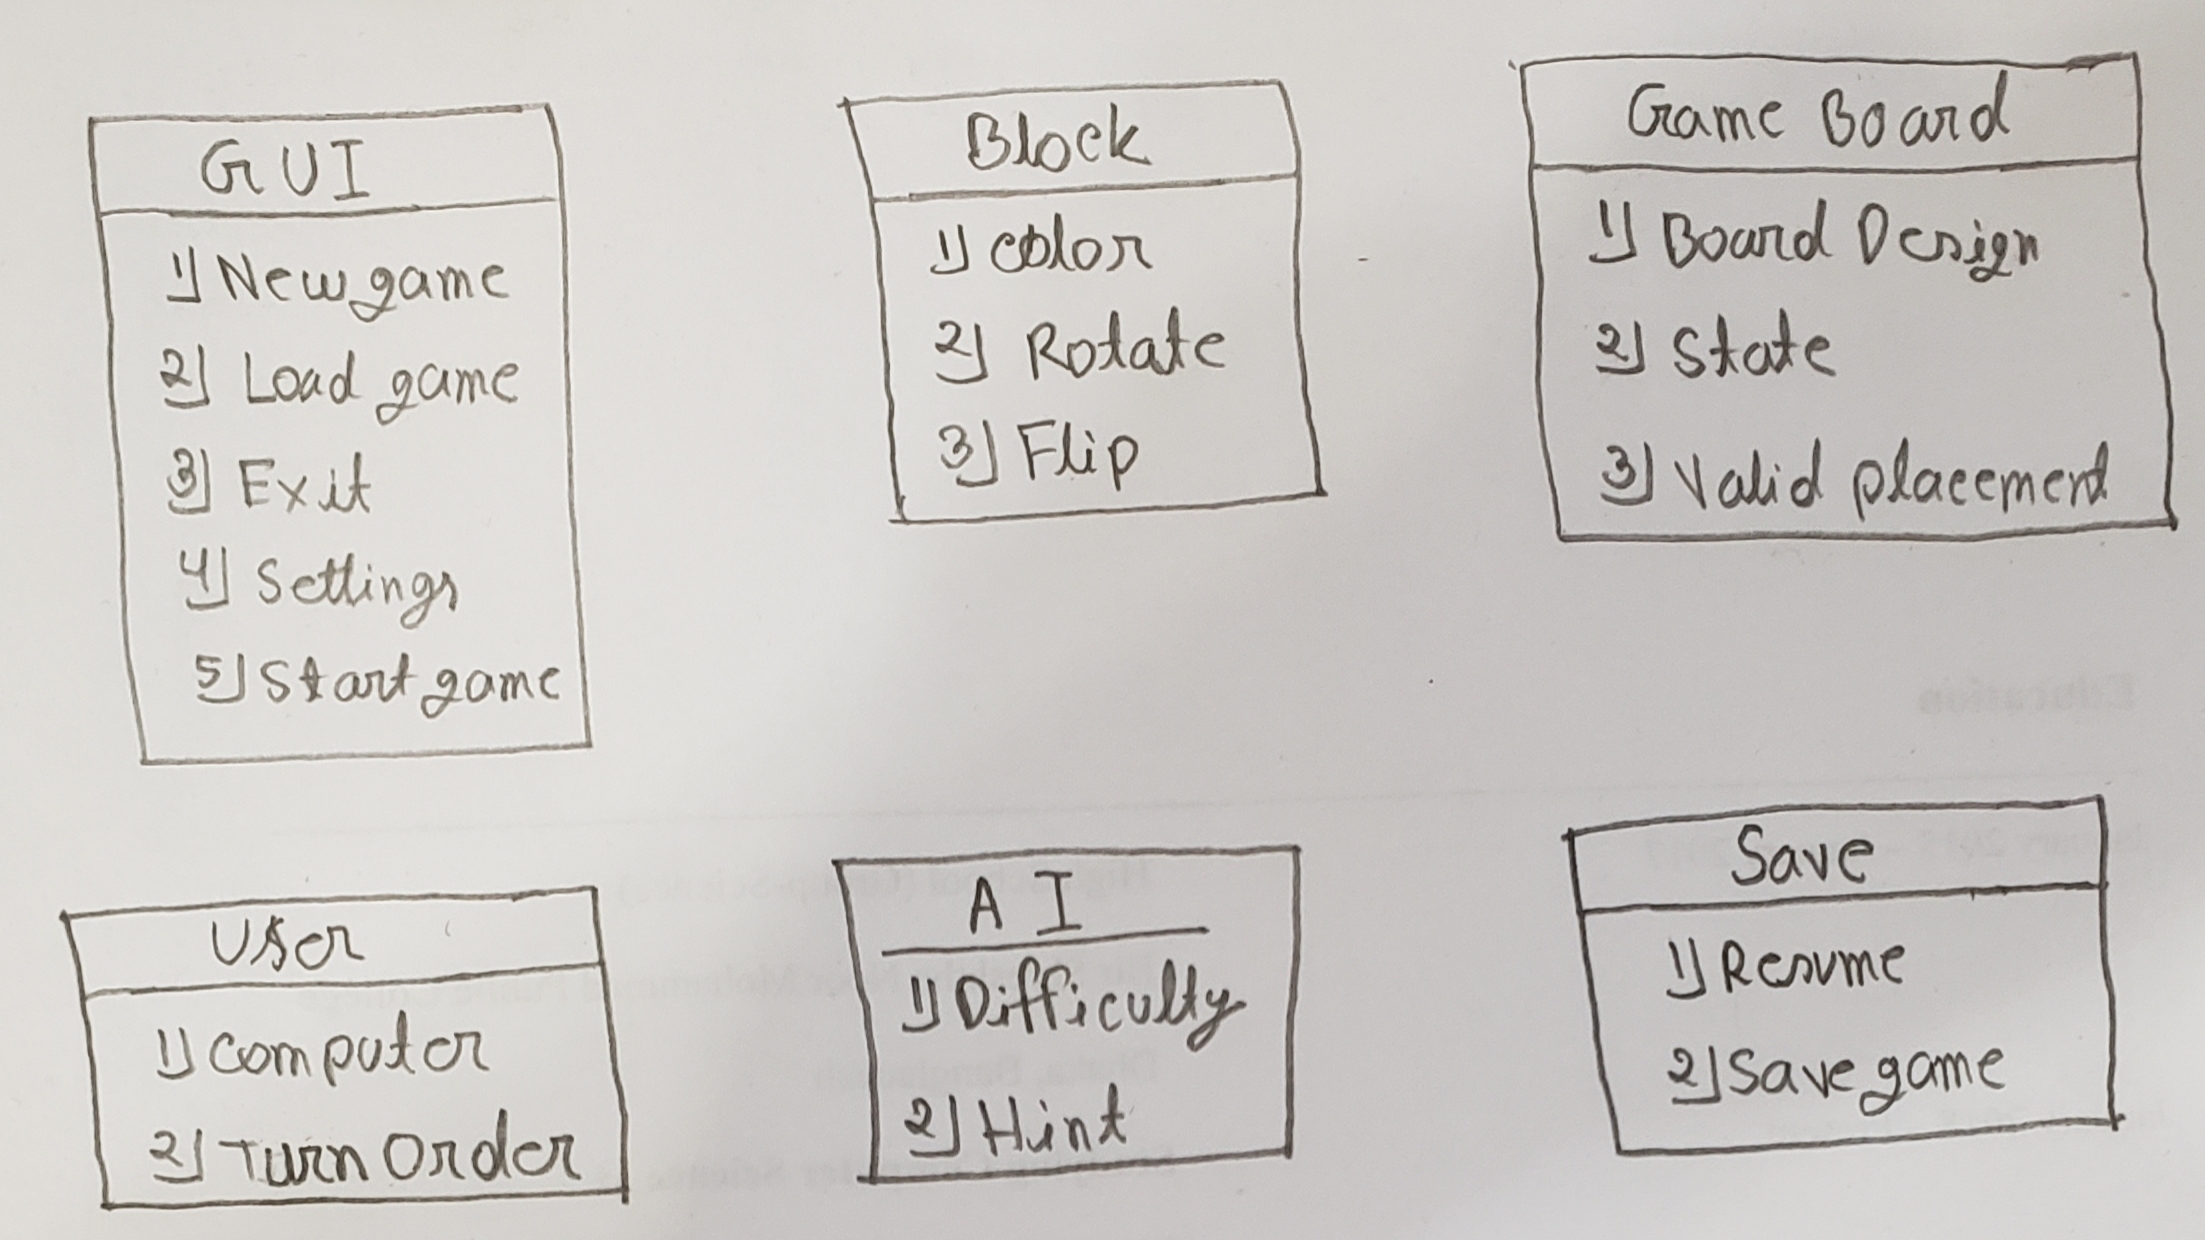 GUI
1) New game
2) Load game
3) Exit
4) Settings
5) Start game
Block
1) color
2) Rotate
3) Flip
Game Board
1) Board Design
2) State
3) Valid placement
User
1) computer
2) Turn Order
AI
1) Difficulty
2) Hint
Save
1) Resume
2) Save game
Education